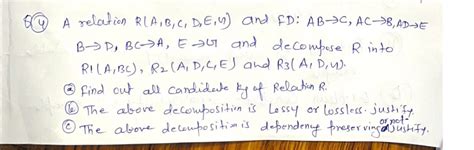 Q④ A relation R(A,B,C,D,E,G) and FD: AB→C, AC→B, AD→E
B→D, BC→A, E→G and decompose R into
R1(A,BC), R2(A,D,C,E) and R3(A,D,G).
ⓐ find out all candidate key of Relation R.
ⓑ The above decomposition is Lossy or lossless. justify.
ⓒ The above decomposition is dependency preserving or not justify.